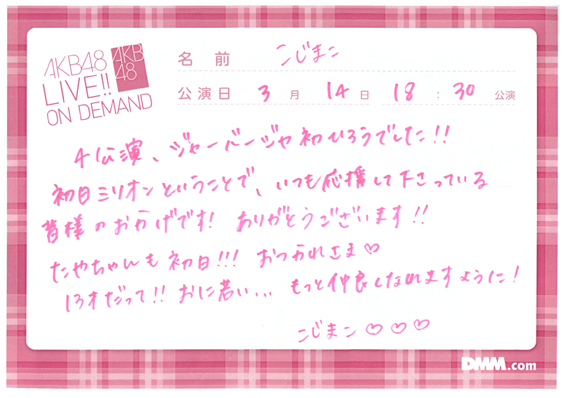 AKB48
LIVE!!
ON DEMAND
AKB
48
名前 こじまこ
公演日 3月14日 18:30 公演
4公演、ジャーバージャ初ひろうでした!!
初日ミリオンということで、いつも応援して下さっている
皆様のおかげです! ありがとうございます!!
たやちゃんも初日!!! おつかれさま♡
13才だって!! おに若い... もっと仲良くなれますように!
こじまこ♡♡♡
DMM.com